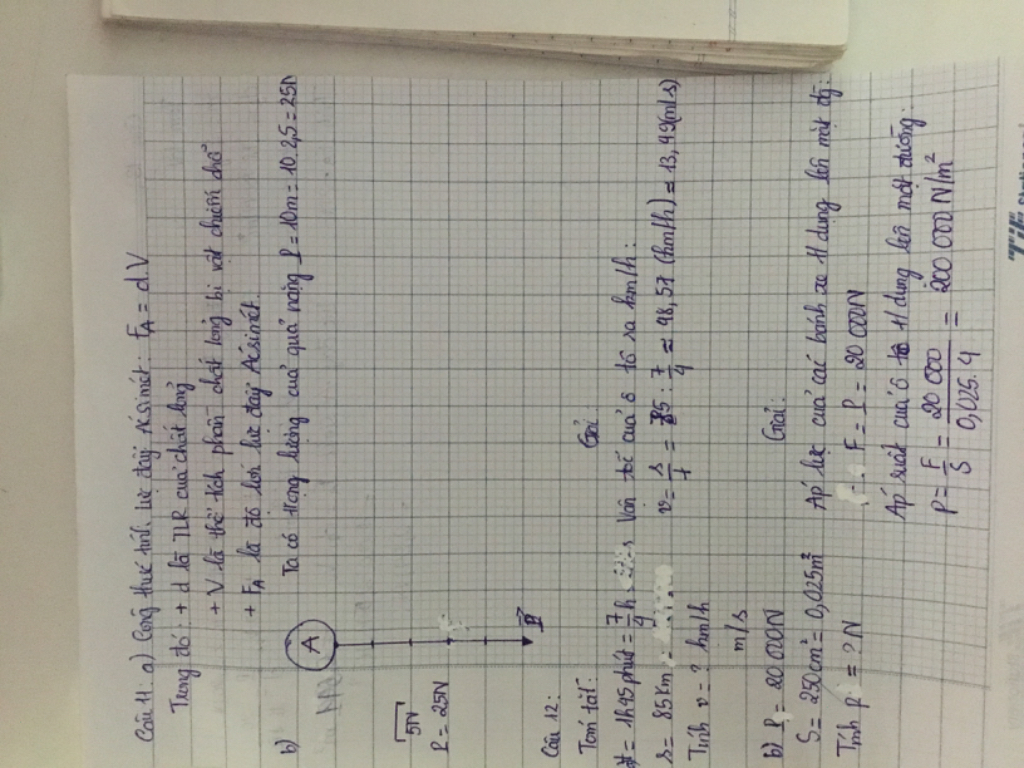 Câu 11: a) Công thức tính lực đẩy Ácsimét: FA = d.V
Trong đó: + d là TLR của chất lỏng
+ V là thể tích phần chất lỏng bị vật chiếm chỗ
+ FA là độ lớn lực đẩy Ácsimét.
b) Ta có trọng lượng của quả nặng P = 10m = 10.2,5 = 25N
A
5N
P = 25N
P
Câu 12:
Tóm tắt: Giải:
t = 1h45phút = 7/4 h Vận tốc của ô tô ra km/h:
s = 85km v = s/t = 85 : 7/4 ≈ 48,57 (km/h) ≈ 13,49(m/s)
Tính v = ? km/h
m/s
b) P = 20 000N Giải:
S = 250cm² = 0,025m² Áp lực của các bánh xe t/dụng lên mặt đg:
Tính p = ? N F = P = 20 000N
Áp suất của ô tô t/dụng lên mặt đường:
P = F/S = 20 000/0,025.4 = 200 000 N/m²